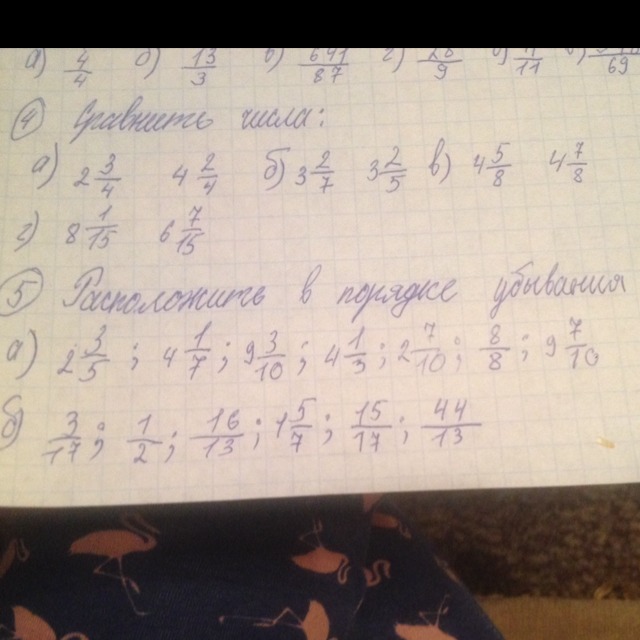 а) 4/4 б) 13/3 в) 641/87 г) 28/9 д) /11 е) /69
④ Сравнить числа:
а) 2 3/4 4 2/4 б) 3 2/7 3 2/5 в) 4 5/8 4 7/8
г) 8 1/15 6 7/15
⑤ Расположить в порядке убывания
а) 2 3/5 ; 4 1/7 ; 9 3/10 ; 4 1/3 ; 2 7/10 ; 8/8 ; 9 7/10
б) 3/17 ; 1/2 ; 16/13 ; 1 5/7 ; 15/17 ; 44/13